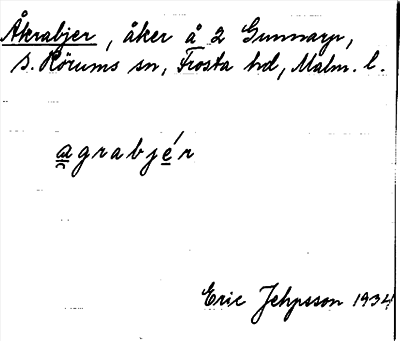 Åkrabjer, åker å 2 Gunnarp,
S. Rörums sn, Frosta hd, Malm. l.
agrabjér
Eric Jepsson 1934